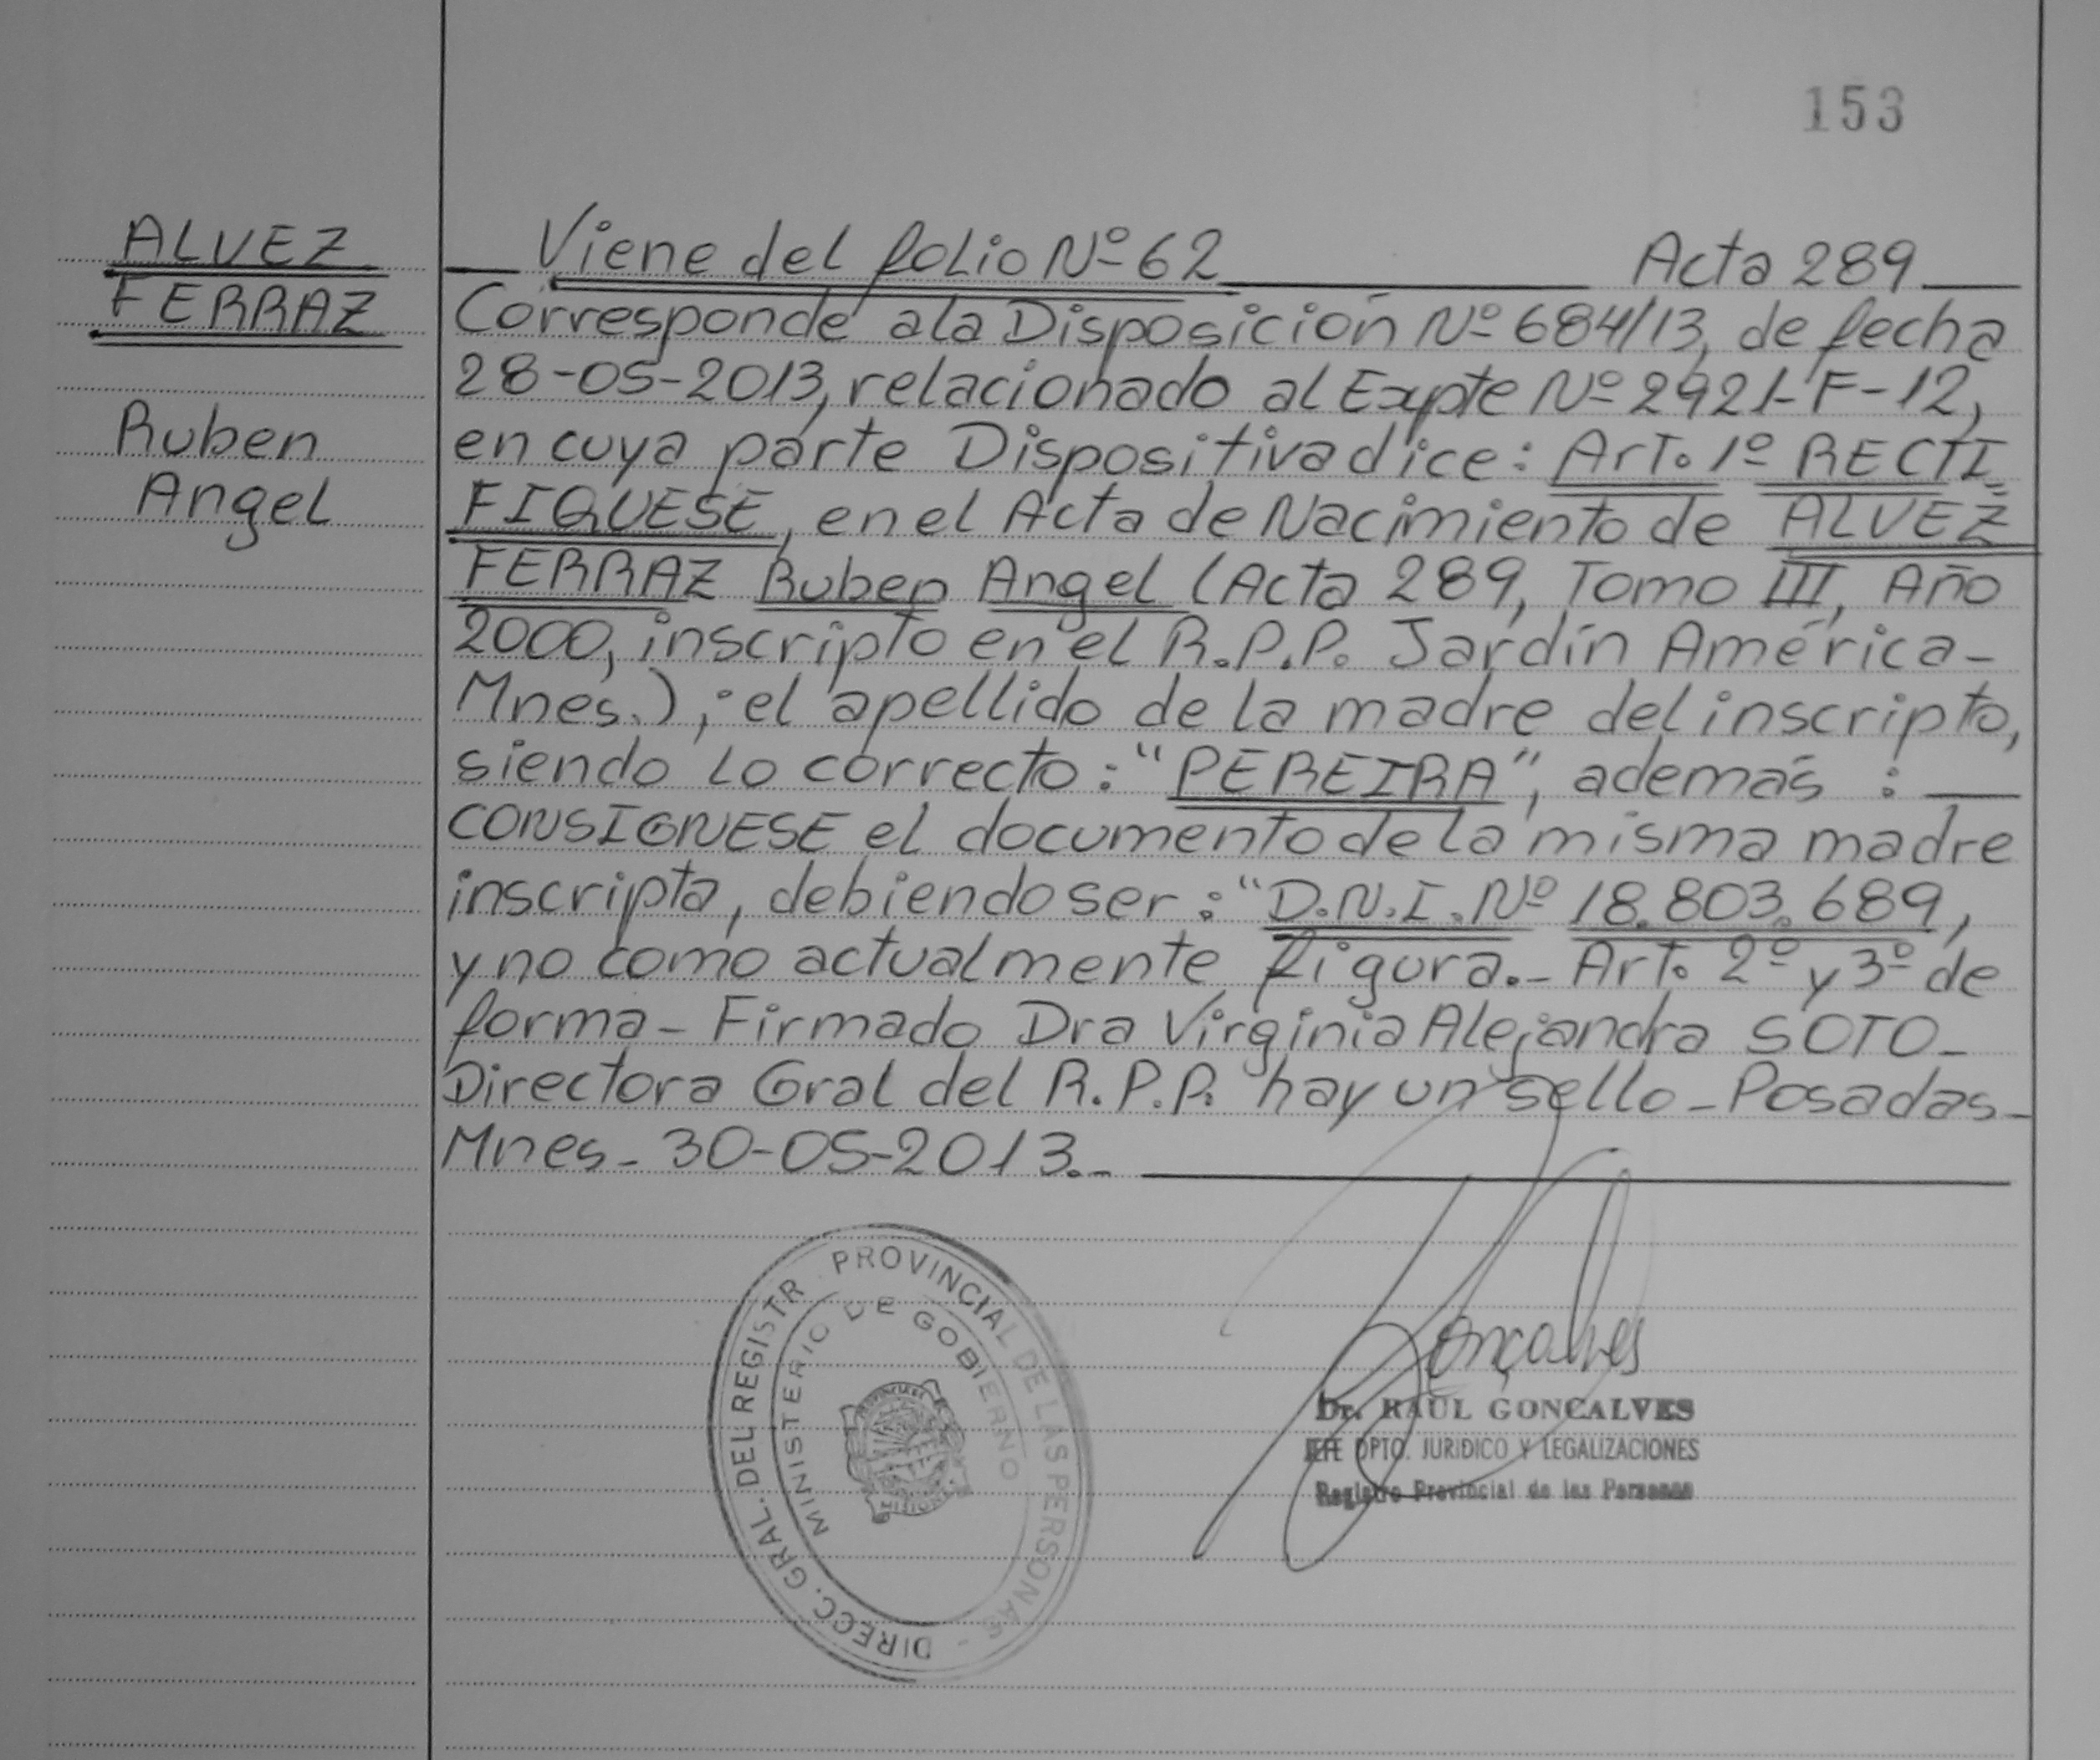 153
ALVEZ
FERRAZ
Ruben
Angel
Viene del folio Nº 62 Acta 289
Corresponde a la Disposición Nº 684/13, de fecha
28-05-2013, relacionado al Expte Nº 2921-F-12,
en cuya parte Dispositiva dice: Art. 1º RECTI
FIQUESE, en el Acta de Nacimiento de ALVEZ
FERRAZ Ruben Angel (Acta 289, Tomo III, Año
2000, inscripto en el R.P.P. Jardín América-
Mnes.); el apellido de la madre del inscripto,
siendo lo correcto: "PEREIRA", además :
CONSIGNESE el documento de la misma madre
inscripta, debiendo ser: "D.N.I. Nº 18.803.689,
y no como actualmente figura.- Art. 2º y 3º de
forma- Firmado Dra Virginia Alejandra SOTO-
Directora Gral del R.P.P. hay un sello - Posadas-
Mnes- 30-05-2013.-
DIRECC. GRAL. DEL REGISTR PROVINCIAL DE LAS PERSONAS -
MINISTERIO DE GOBIERNO
MISIONES
Gonçalves
Dr. RAUL GONCALVES
JEFE DPTO. JURIDICO Y LEGALIZACIONES
Registro Provincial de las Personas